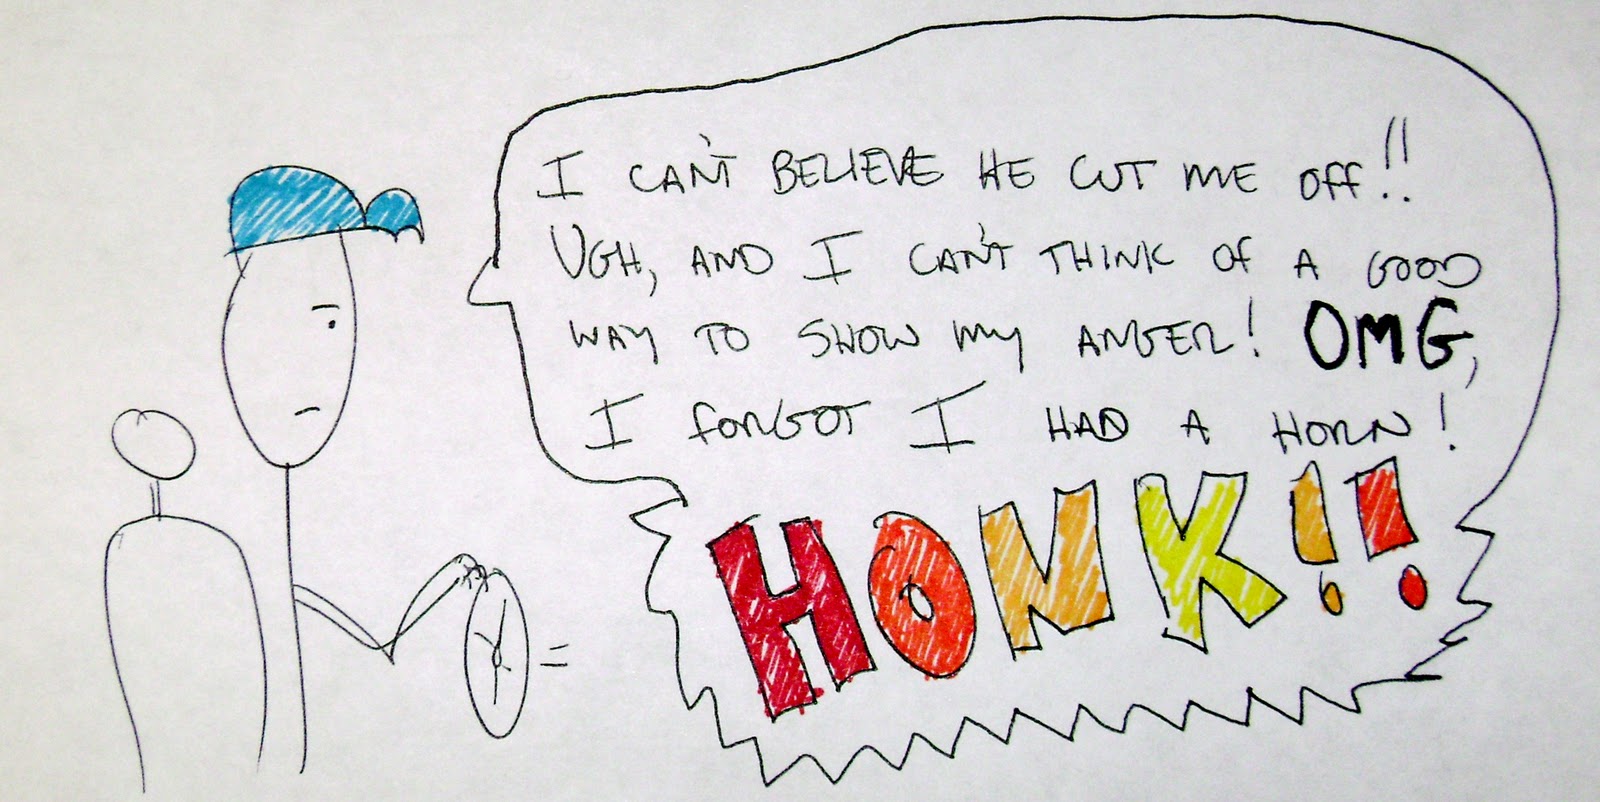 I CAN'T BELIEVE HE CUT ME OFF!!
UGH, AND I CAN'T THINK OF A GOOD
WAY TO SHOW MY ANGER! OMG,
I FORGOT I HAD A HORN!
HONK!!